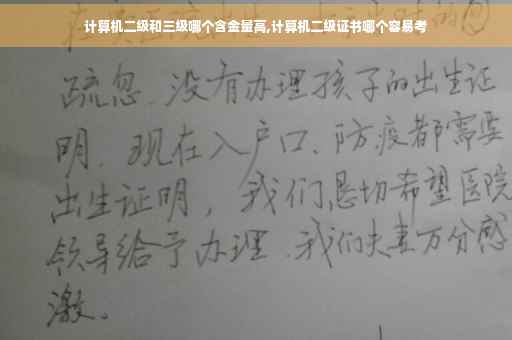 计算机二级和三级哪个含金量高,计算机二级证书哪个容易考
疏忽、没有办理孩子的出生证
明、现在入户口、防疫都需要
出生证明，我们恳切希望医院
领导给予办理、我们夫妻万分感
激。